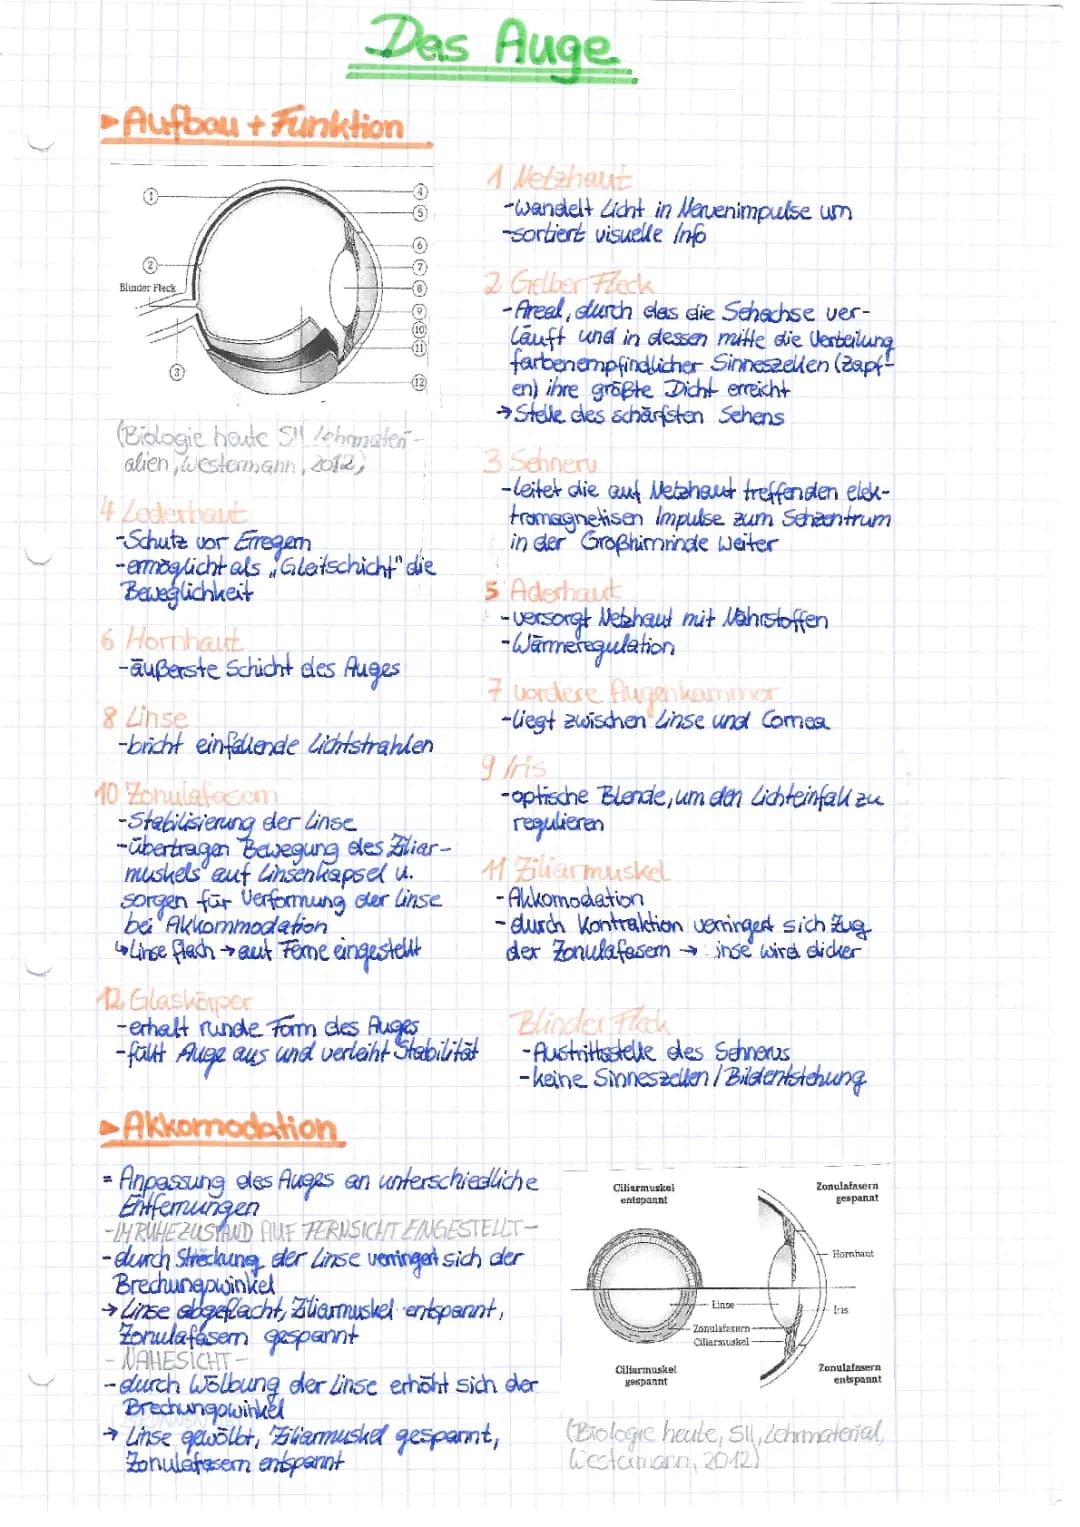 Das Auge
▸Aufbau + Funktion
1
2
Blinder Fleck
3
4
5
6
7
8
9
10
11
12
(Biologie heute SII Lehrmateri-
alien, Westermann, 2012)
1 Netzhaut
-wandelt Licht in Nervenimpulse um
-sortiert visuelle Info
2 Gelber Fleck
-Areal, durch das die Sehachse ver-
läuft und in dessen mitte die Verteilung
farbenempfindlicher Sinneszellen (Zapf-
en) ihre größte Dicht erreicht
→Stelle des schärfsten Sehens
3 Sehnerv
-leitet die auf Netzhaut treffenden elek-
tromagnetisen Impulse zum Sehzentrum
in der Großhirnrinde weiter
4 Lederhaut
-Schutz vor Erregern
-ermöglicht als „Gleitschicht" die
Beweglichkeit
5 Aderhaut
-versorgt Netzhaut mit Nährstoffen
-Wärmeregulation
6 Hornhaut
-äußerste Schicht des Auges
7 vordere Augenkammer
-liegt zwischen Linse und Cornea
8 Linse
-bricht einfallende Lichtstrahlen
9 Iris
-optische Blende, um den Lichteinfall zu
regulieren
10 Zonulafasern
-Stabilisierung der Linse
-übertragen Bewegung des Ziliar-
muskels auf Linsenkapsel u.
sorgen für Verformung der Linse
bei Akkommodation
↳Linse flach → auf Ferne eingestellt
11 Ziliarmuskel
-Akkomodation
-durch Kontraktion verringert sich Zug
der Zonulafasern → inse wird dicker
12 Glaskörper
-erhält runde Form des Auges
-füllt Auge aus und verleiht Stabilität
Blinder Fleck
-Austrittsstelle des Sehnervs
-keine Sinneszellen / Bildentstehung
▸Akkomodation
= Anpassung des Auges an unterschiedliche
Entfernungen
-IM RUHEZUSTAND AUF FERNSICHT EINGESTELLT-
-durch Streckung der Linse verringert sich der
Brechungswinkel
→ Linse abgeflacht, Ziliarmuskel entspannt,
Zonulafasern gespannt
-NAHESICHT-
-durch Wölbung der Linse erhöht sich der
Brechungswinkel
→ Linse gewölbt, Ziliarmuskel gespannt,
Zonulafasern entspannt
Ciliarmuskel
entspannt
Zonulafasern
gespannt
Hornhaut
Linse
Iris
Zonulafasern
Ciliarmuskel
Ciliarmuskel
gespannt
Zonulafasern
entspannt
(Biologie heute, SII, Lehrmaterial,
Westermann, 2012)